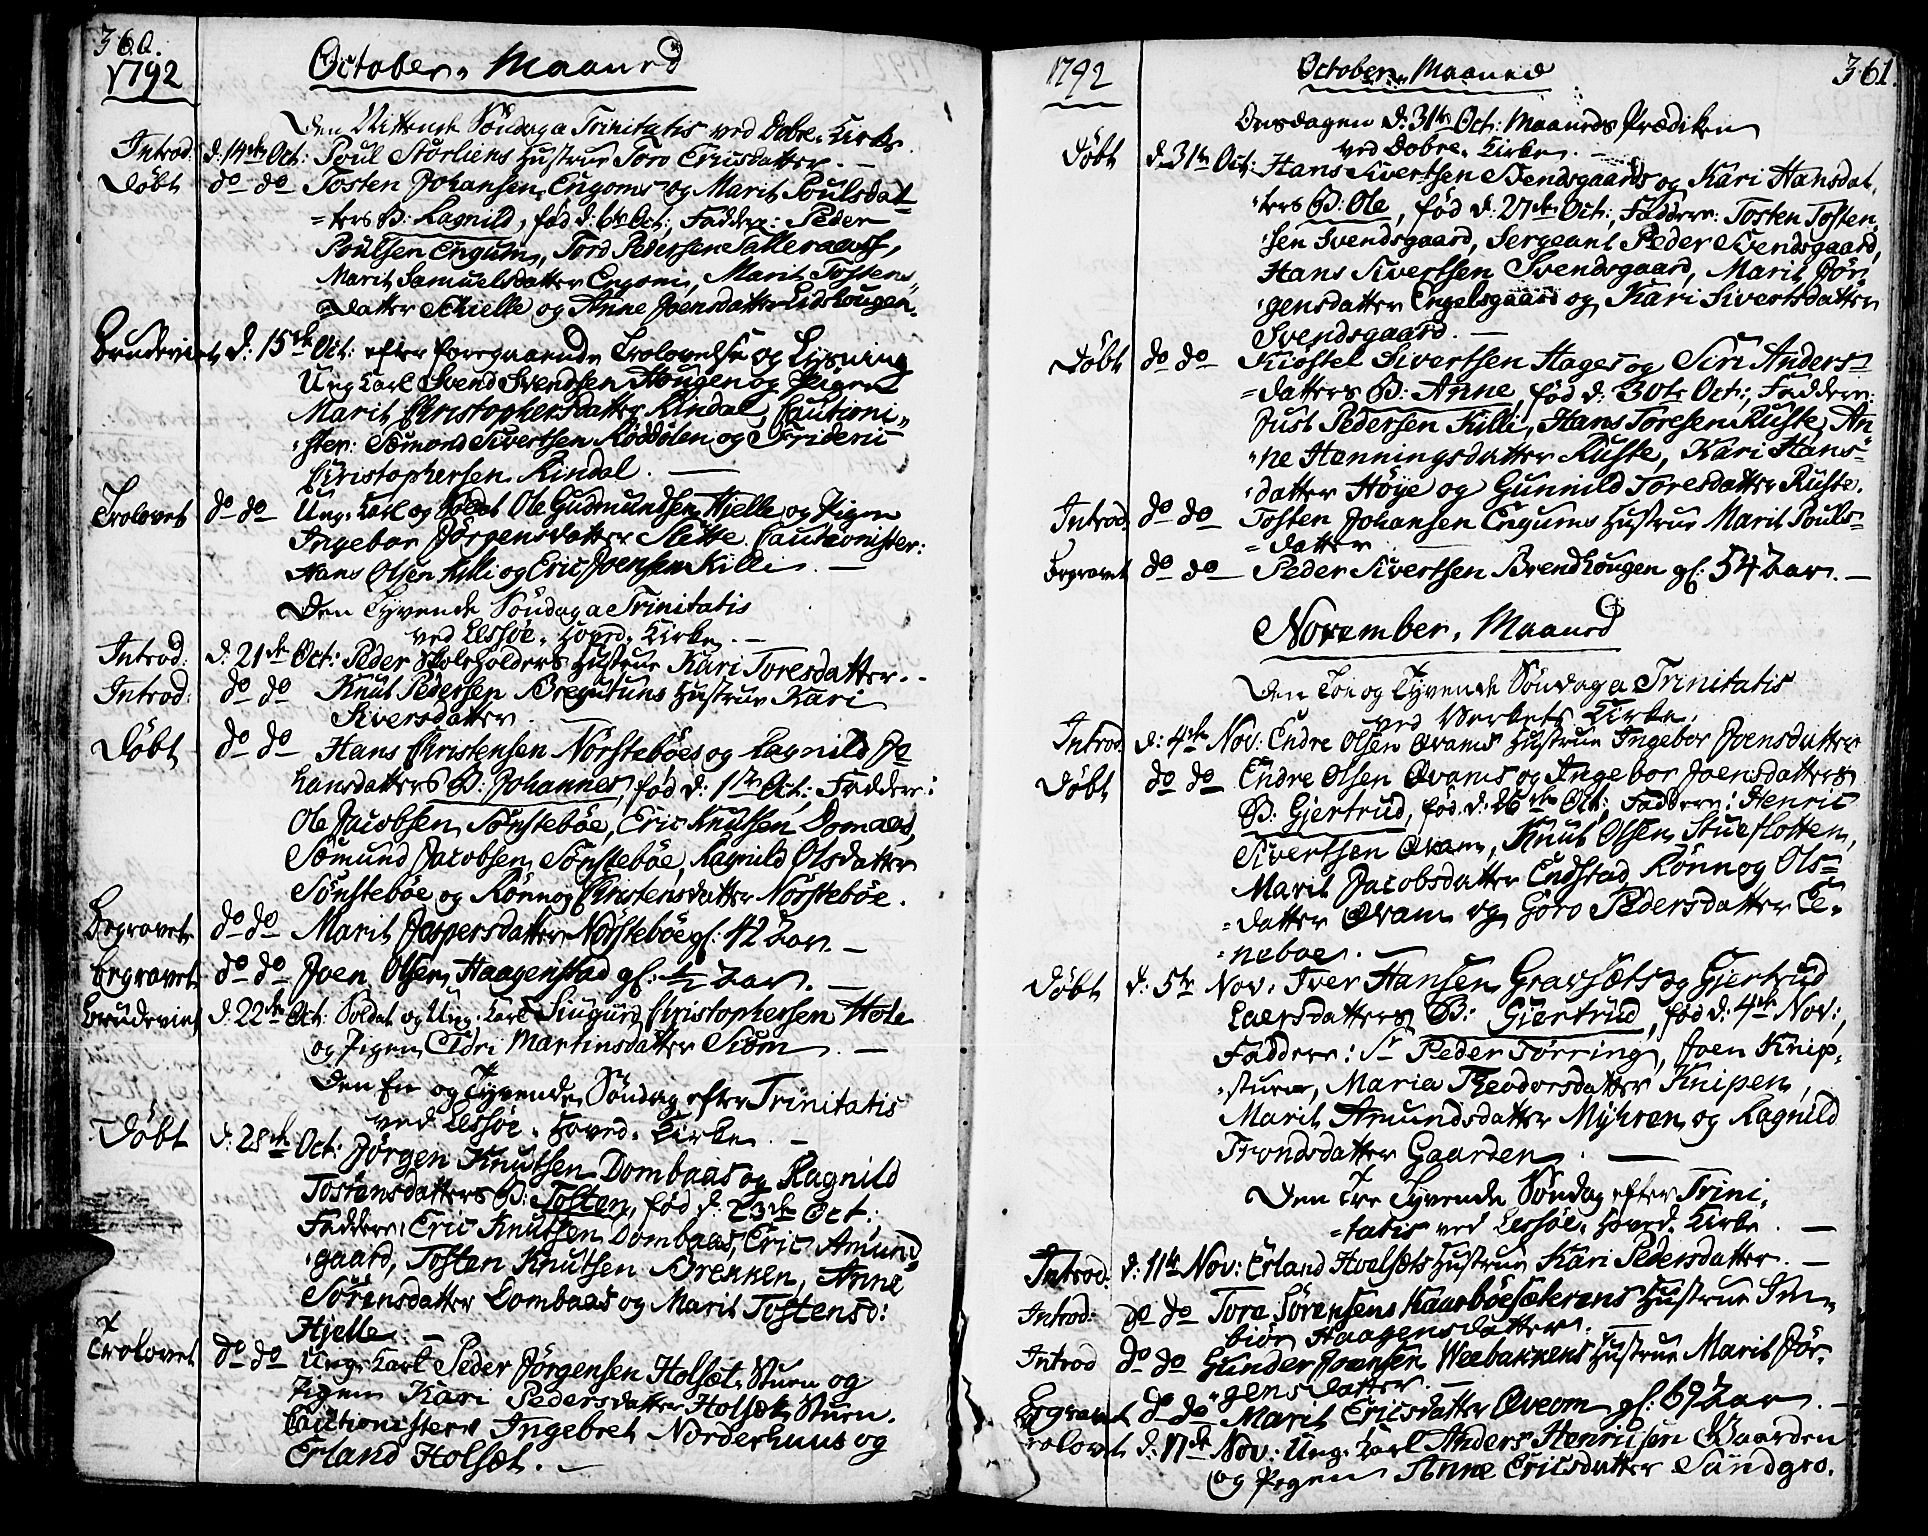 360.
1792 October Maaned
Den Nittende Søndag a Trinitatis ved Dovre Kirke.
Introd: d: 14de Oct: Poul Storliens Hustrue Toro Ericsdatter. —
Døbt do do Tosten Johansen Engoms og Marit Poulsdat-
=ters B: Ragnild, fød d: 6te Oct:, Faddere: Peder
Poulsen Engum, Tord Pedersen Talleraas,
Marit Samuelsdatter Engom, Marit Tostens
Datter Schielle og Anne Joensdatter Lidshougen.
Brudeviet d: 15de Oct: efter foregaaende Trolovelse og Lysning
Ung Karl Svend Svendsen Hougen og Pigen
Marit Christophersdatter Kindal, Cautioni-
ster: Sømond Sivertsen Røddølen og Frideric
Christophersen Kindal. —
Trolovet do do Ung Karl og Soldat Ole Gudmundsen Hjelle og Pigen
Ingebor Jørgensdatter Slette. Cautionister:
Hans Olsen Killi og Eric Joensen Killi. —
Den Tyvende Søndag a Trinitatis
ved Lessøe Hoved Kirke. —
Introd: d: 21de Oct: Peder Skoleholders Hustrue Kari Toresdatter. -
Introd: do do Knut Pedersen Bregutuns Hustrue Kari
Siversdatter.
Døbt do do Hans Christensen Nørstebøes og Ragnild Jo
hansdatters B: Johannes, fød d: 1ste Oct:, Faddere:
Ole Jacobsen Sønstebøe, Eric Knutsen Domaas,
Sømund Jacobsen Sønstebøe, Ragnild Olsdatter
Sønstebøe og Rønnog Christensdatter Nørstebøe.
Begravet do do Marit Jespersdatter Nørstebøe gl: 42 Aar. —
Begravet do do Joen Olsen Haagenstad gl: ½ Aar. —
Brudeviet d: 22de Oct: Soldat og Ung Karl Siugurd Christophersen Hole
og Pigen Eldri Martinsdatter Siom. —
Den En og Tyvende Søndag efter Trinitatis
ved Lessøe Hoved Kirke. -
Døbt d: 28de Oct: Jørgen Knutsen Dombaas og Ragnild
Tostensdatters B: Tosten, fød d: 23de Oct:,
Faddere: Eric Knutsen Dombaas, Eric Amund
gaard, Tosten Knutsen Brekken, Anne
Sørensdatter Dombaas og Marit Tostensd:
Hjelle. —
Trolovet do do Ung Karl Peder Jørgensen Holsæt Stuen og
Pigen Kari Pedersdatter Holsæt Stuen.
Cautionistere Ingebret Norderhuus og
Erland Holsæt. —
1792 October Maaned 361
Onsdagen d: 31te Oct: Maaneds Prædiken
ved Dovre Kirke. —
Døbt d: 31te Oct: Hans Sivertsen Svendsgaards og Kari Hansdat-
ters B: Ole, fød d: 27de Oct:, Faddere: Tosten Tosten-
sen Svendsgaard, Sergeant Peder Svendsgaard,
Hans Sivertsen Svendsgaard, Marit Jør-
gensdatter Engelsgaard og Kari Sivertsdatter
Svendsgaard. —
Døbt do do Kiostel Sivertsen Hages og Siri Anders-
=datters B: Anne, fød d: 30te Oct:, Faddere:
Just Pedersen Killi, Hans Toresen Ruste, An
ne Henningsdatter Ruste, Kari Hans-
datter Høye og Gunnild Toresdatter Ruste.
Introd: do do Tosten Johansen Engums Hustrue Marit Pouls-
=datter. —
Begravet do do Peder Sivertsen Brendhougen gl: 54 Aar. —
November Maaned
Den Toe og Tyvende Søndag a Trinitatis
ved Verkets Kirke.
Introd: d: 4de Nov: Endre Olsen Qvams Hustrue Ingebor Joensdatter
Døbt do do Endre Olsen Qvams og Ingebor Joensdatters
B: Gjertrud, fød d: 26de Oct:, Faddere: Henric
Sivertsen Qvam, Knut Olsen Stueflotten,
Marit Jacobsdatter Endstad, Rønnog Ols=
=datter Qvam og Goro Pedersdatter Te-
neboe. —
Døbt d: 5te Nov: Iver Hansen Gravsæts og Gjertrud
Laersdatters B: Giertrud, fød d: 4de Nov:,
Faddere: Sr Peder Tørring, Joen Knip-
stuen, Maria Theodorsdatter Knipen,
Marit Amundsdatter Myhren og Ragnild
Trondsdatter Gaarden. —
Den Tre Tyvende Søndag efter Trini-
=tatis ved Lessøe Hoved Kirke. —
Introd: d: 11te Nov: Erland Hvelsæts Hustrue Kari Pedersdatter. —
Introd: do do Tore Sørensens Kaarbøesæterens Hustrue Im-
biør Haagensdatter. —
Introd do do Gunder Joensen Weebakkens Hustrue Marit Jør-
gensdatter. —
Begravet do do Marit Ericsdatter Qveom gl: 69 Aar. —
Trolovet d: 17de Nov: Ung Karl Anders Henricsen Gaarden
og Pigen Anne Ericsdatter Sandgro.